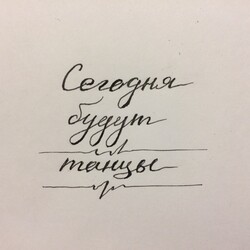 Сегодня
будут
танцы